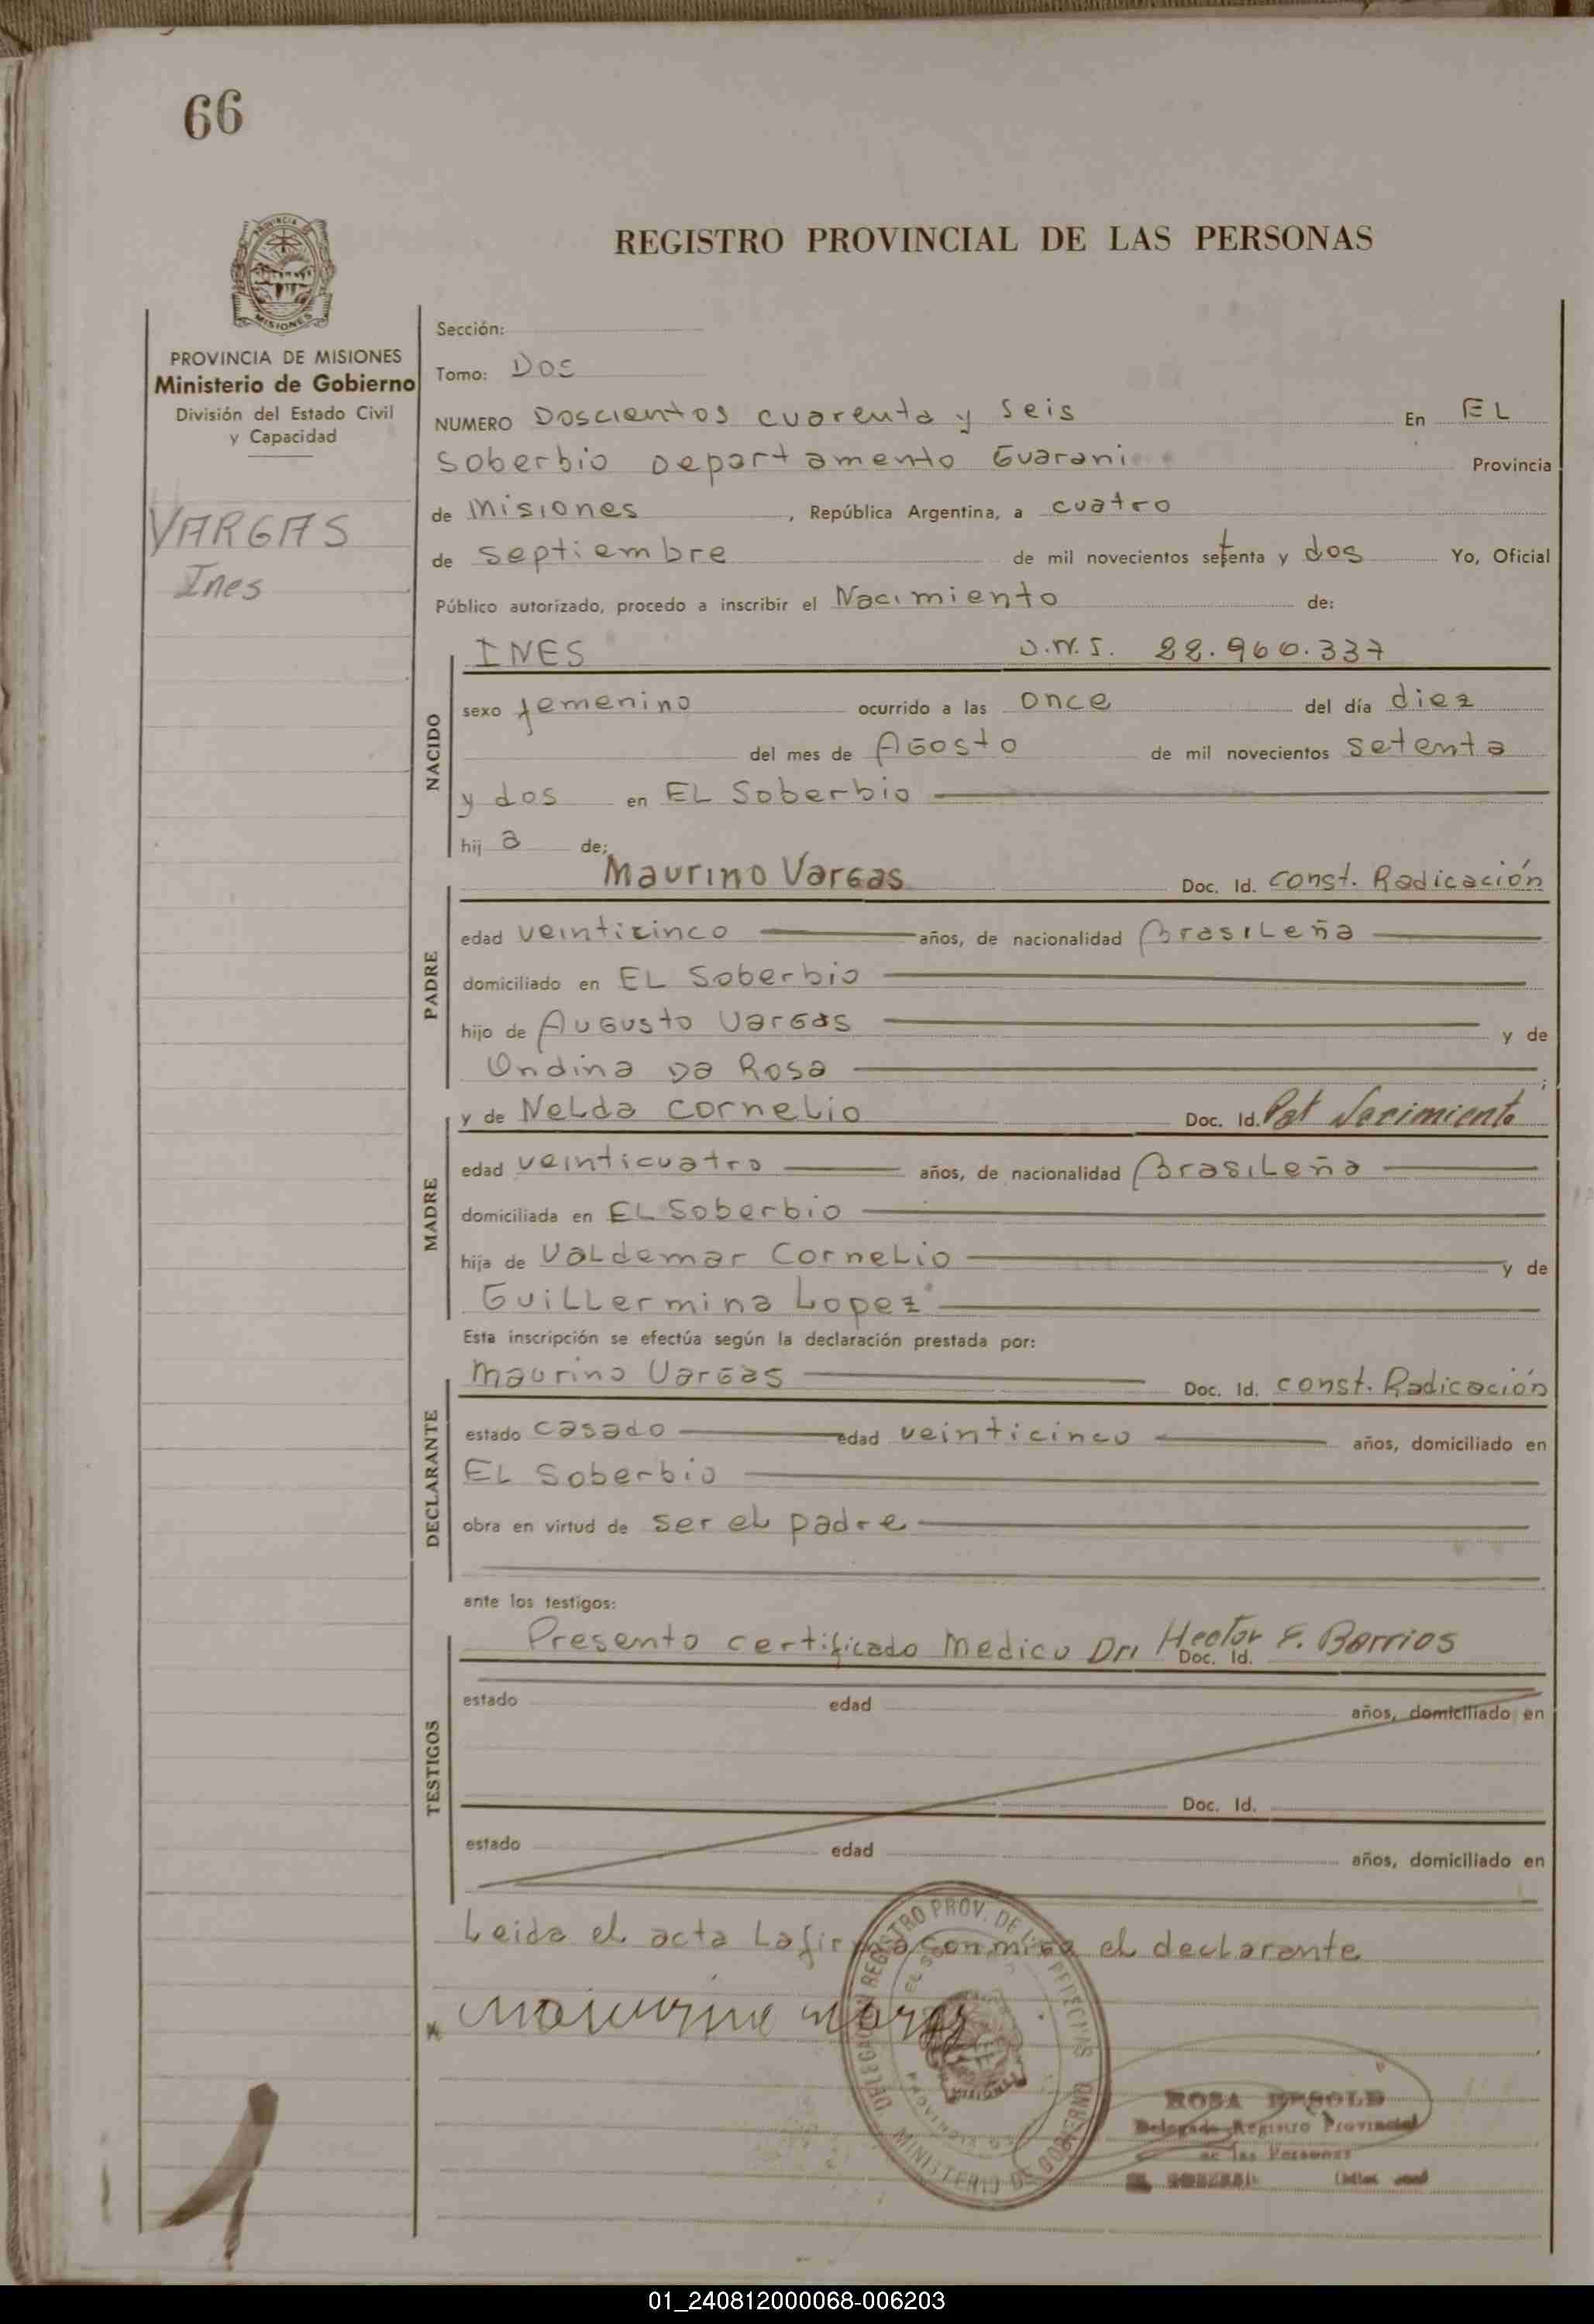 66
PROVINCIA
MISIONES
REGISTRO PROVINCIAL DE LAS PERSONAS
PROVINCIA DE MISIONES
Ministerio de Gobierno
División del Estado Civil
y Capacidad
VARGAS
Ines
Sección:
Tomo: Dos
NUMERO Doscientos cuarenta y seis En EL
Soberbio Departamento Guarani Provincia
de Misiones, República Argentina, a cuatro
de septiembre de mil novecientos setenta y dos Yo, Oficial
Público autorizado, procedo a inscribir el Nacimiento de:
NACIDO
INES D.N.I. 22.960.337
sexo femenino ocurrido a las once del día diez
del mes de Agosto de mil novecientos setenta
y dos en EL Soberbio
hij a de:
PADRE
Maurino Vargas Doc. Id. const. Radicación
edad veinticinco años, de nacionalidad Brasileña
domiciliado en EL Soberbio
hijo de Augusto Vargas y de
Ondina Da Rosa
MADRE
y de Nelda Cornelio Doc. Id. Nacimiento
edad veinticuatro años, de nacionalidad Brasileña
domiciliada en EL Soberbio
hija de Valdemar Cornelio y de
Guillermina Lopez
Esta inscripción se efectúa según la declaración prestada por:
DECLARANTE
Maurino Vargas Doc. Id. const. Radicación
estado casado edad veinticinco años, domiciliado en
EL Soberbio
obra en virtud de ser el padre
ante los testigos:
TESTIGOS
Presento certificado Medico Dr. Hector F. Barrios
Doc. Id.
estado edad años, domiciliado en
Doc. Id.
estado edad años, domiciliado en
Leida el acta la firma conmigo el declarante
DELEGACION REGISTRO PROV. DE LAS PERSONAS
MISIONES
MINISTERIO DE GOBIERNO
ROSA
Delegada Registro Provincial
de las Personas
01_240812000068-006203